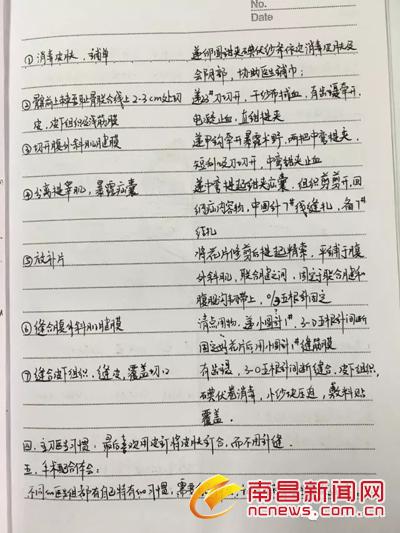 No.
Date
①消毒皮肤、铺单
递卵圆钳夹碘伏纱布依次消毒皮肤及
会阴部，协助医生铺巾；
②髂前上棘至耻骨联合线上2-3cm处切
递23#刀切开，干纱布拭血，
牵开，
皮、皮下组织及浅筋膜
电凝止血，直钳提夹
③切开腹外斜肌腱膜
递甲钩牵开暴露术野，两把中弯提夹，
中弯钳止血
④分离提睾肌，暴露疝囊
递中弯提起钳夹疝囊，组织剪剪开，回
纳疝内容物，中圆针7#线缝扎，备7#
结扎
⑤放补片
将花片修剪后提起精索，平铺于腹
外斜肌，联合腱之间，固定于联合腱和
腹股沟韧带上，
固定
⑥缝合腹外斜肌腱膜
清点用物，递小圆针1#，3-0
针间断
固定好花片后用小圆针1#缝筋膜
⑦缝合皮下组织，缝皮，覆盖切口
有齿镊，3-0
针间断缝合皮下组织，
碘伏卷消毒，小纱块压迫，敷料贴
覆盖．
四、主刀医生习惯：最后喜欢用皮钉将皮肤钉合，而不用针缝．
五、手术配合体会：
不同的医生组都有自己特有的习惯，需
南昌新闻网
ncnews.com.cn